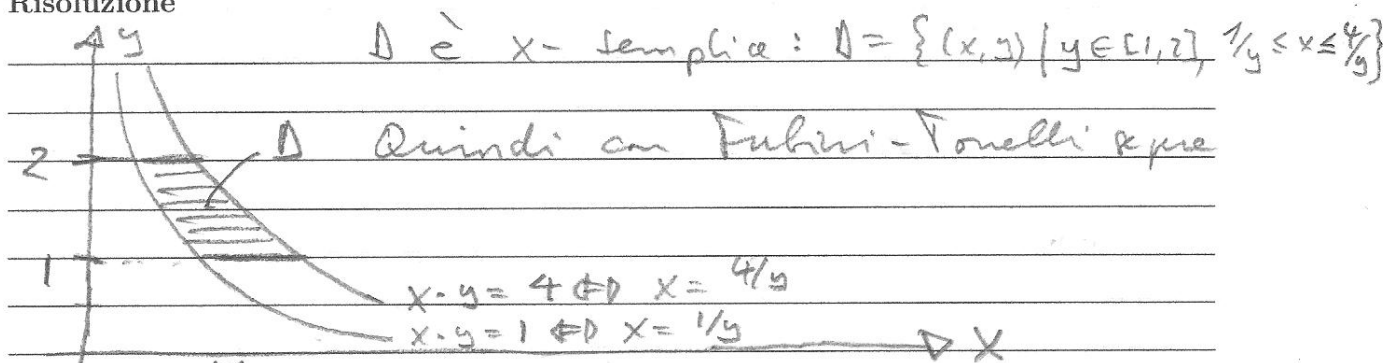 Risoluzione
y
D è x-semplice : D = {(x,y) | y ∈ [1,2], 1/y ≤ x ≤ 4/y}
D Quindi con Fubini-Tonelli segue
2
1
x·y = 4 ⇔ x = 4/y
x·y = 1 ⇔ x = 1/y
x